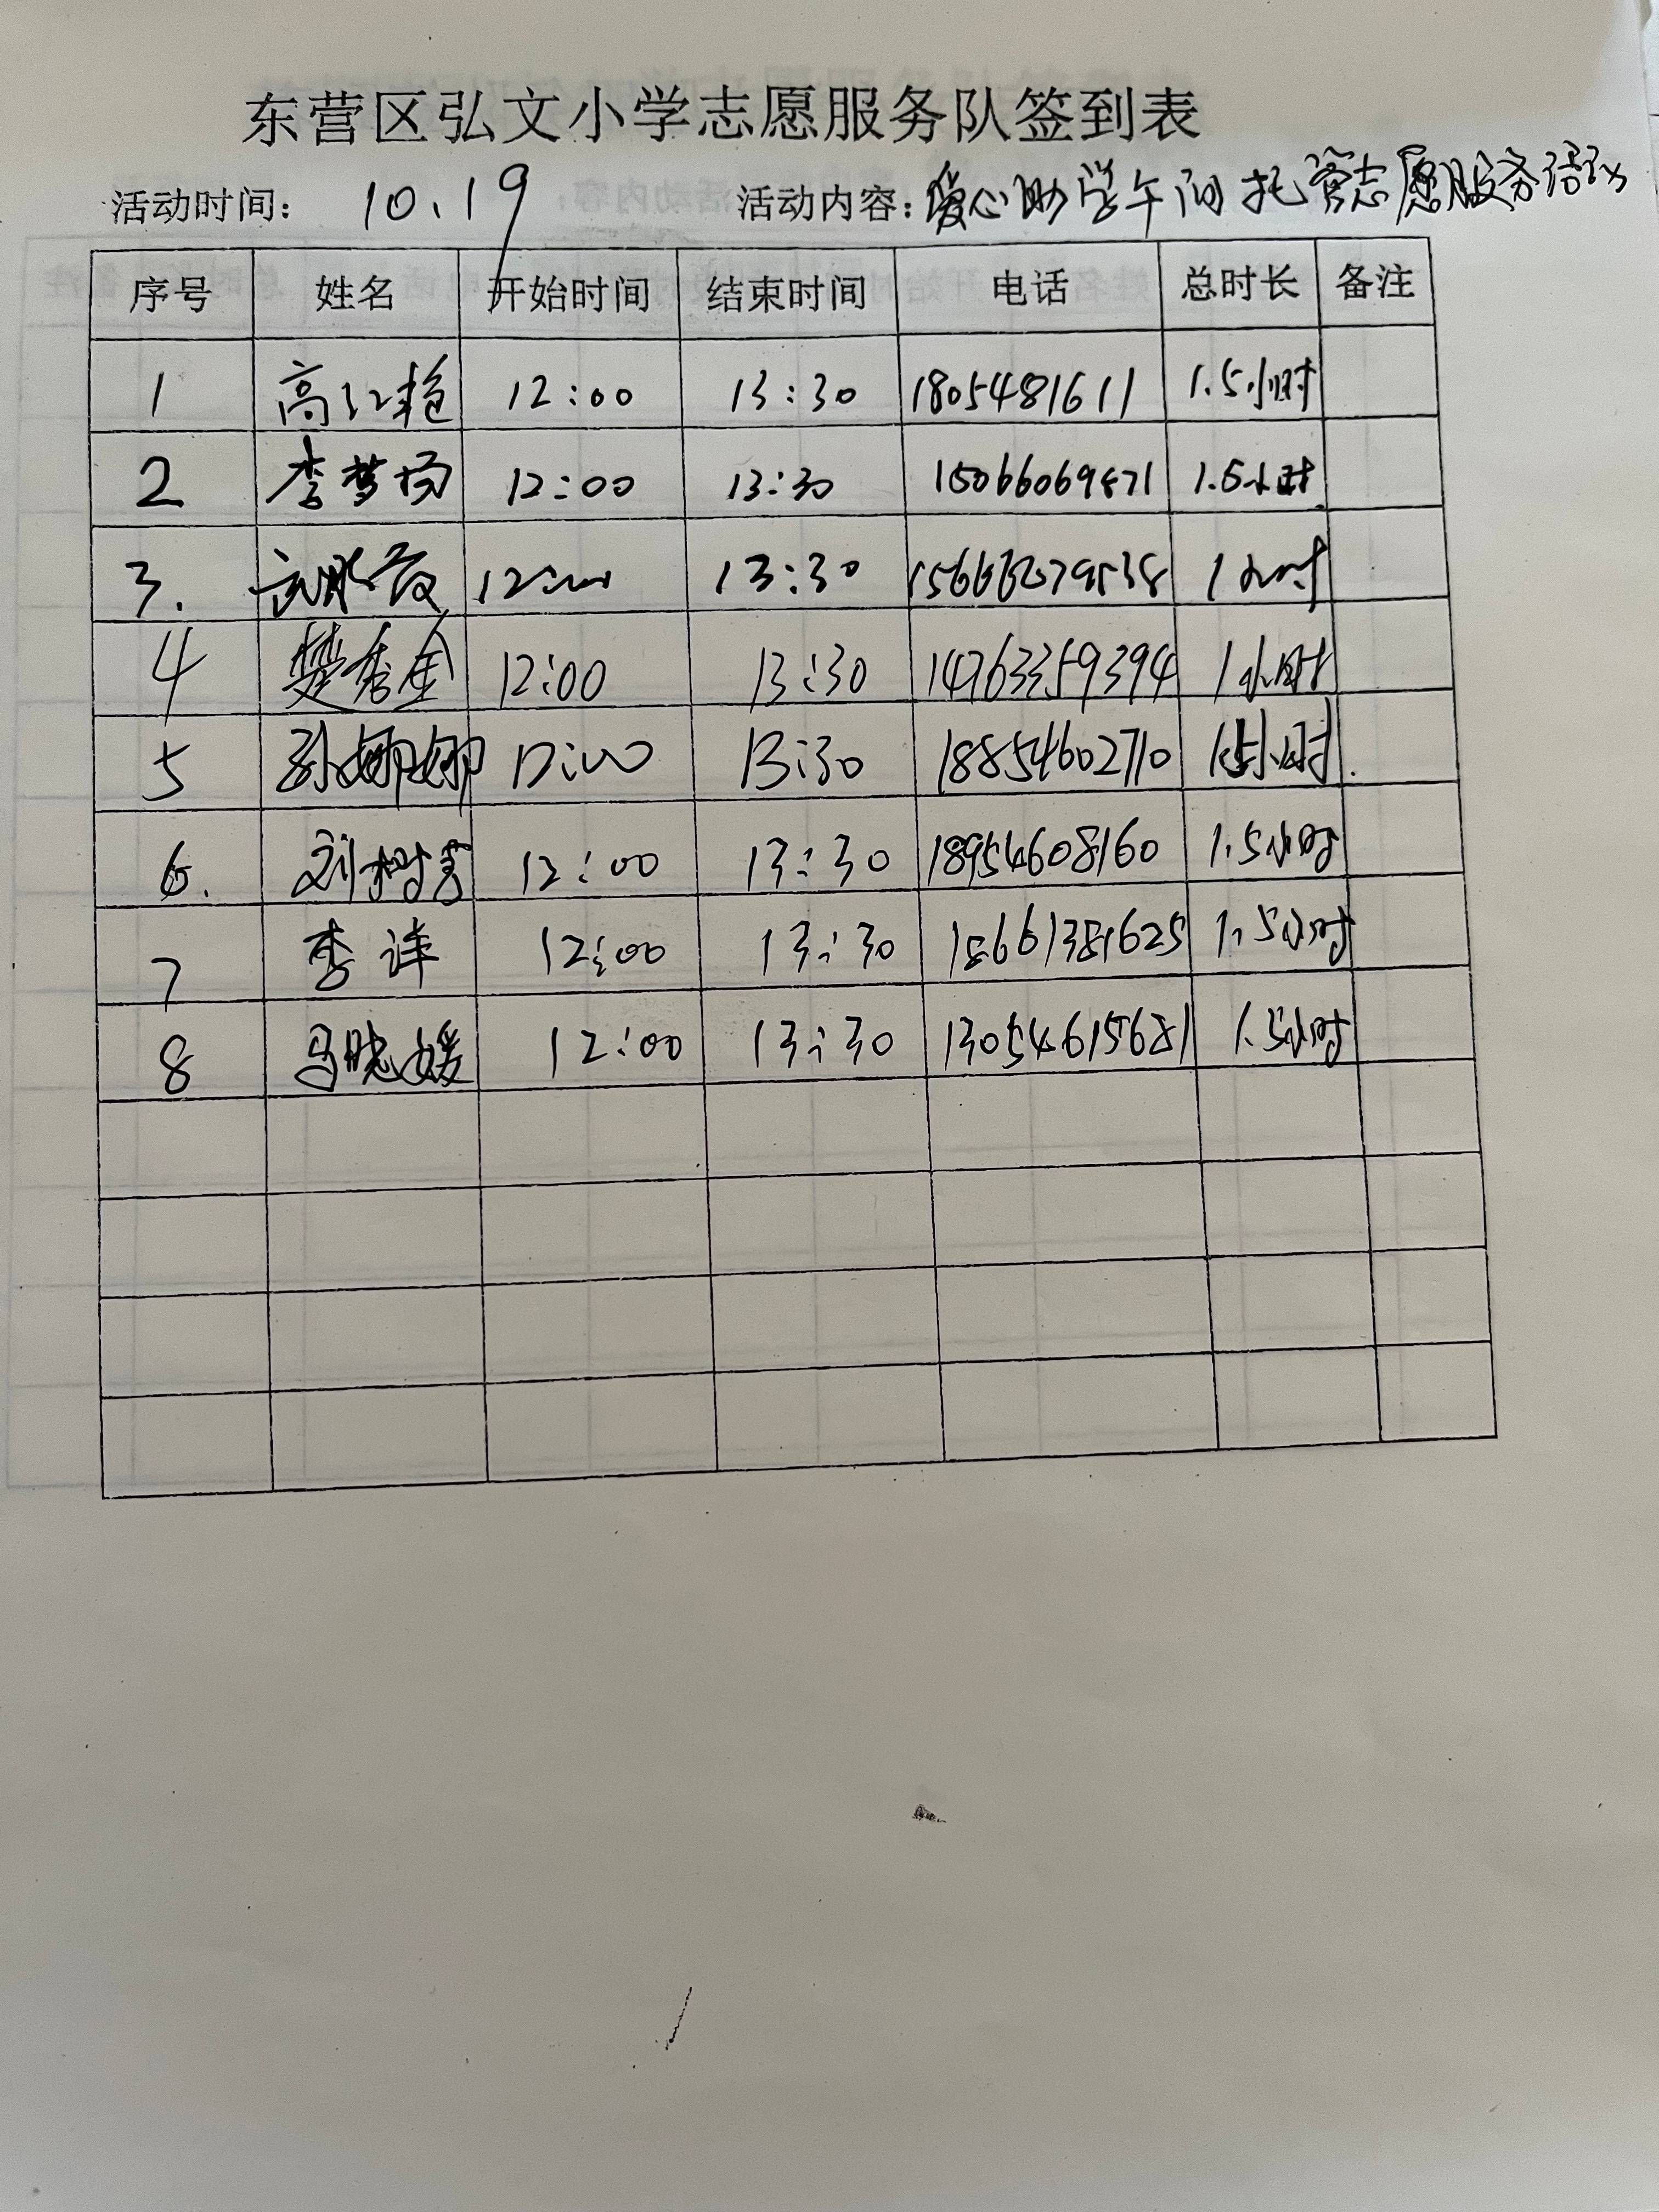 东营区弘文小学志愿服务队签到表
活动时间： 10.19 活动内容：爱心助学午间托管志愿服务活动
序号 姓名 开始时间 结束时间 电话 总时长 备注
1 高红艳 12:00 13:30 1805481611 1.5小时
2 李梦杨 12:00 13:30 15066069871 1.5小时
3. 12:00 13:30 1小时
4 樊秀金 12:00 13:30 14763359394 1小时
5 孙娜娜 12:00 13:30 18854602710 1.5小时
6. 刘树芳 12:00 13:30 18954608160 1.5小时
7 李详 12:00 13:30 18661381625 1.5小时
8 马晓媛 12:00 13:30 13054615681 1.5小时